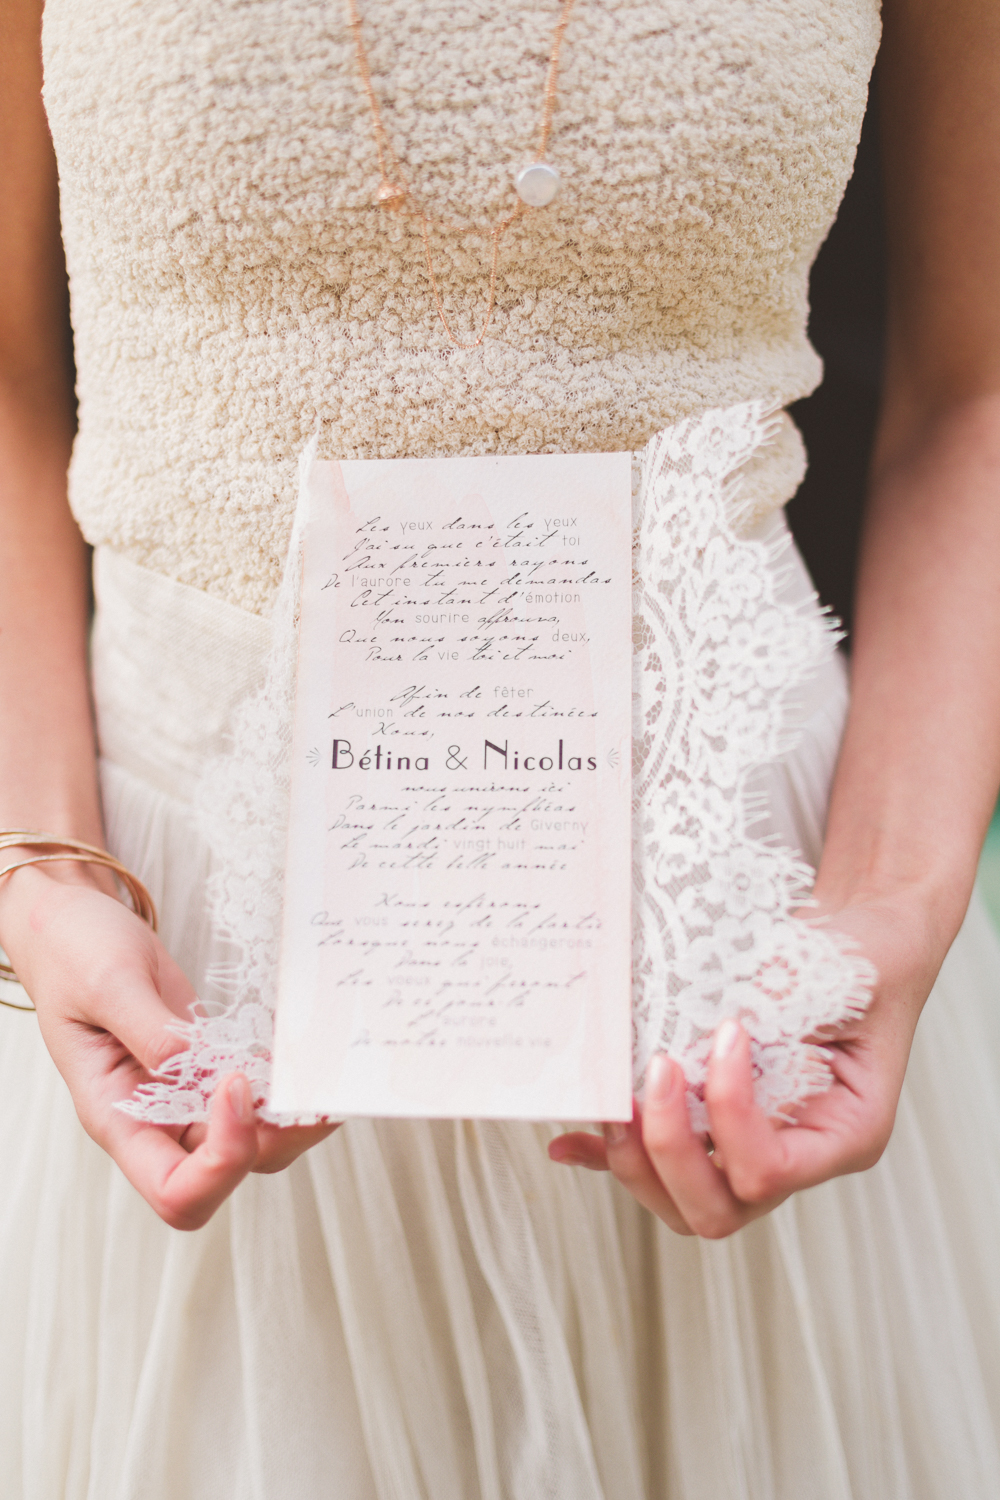 Les yeux dans les yeux
J'ai su que c'était toi
Aux premiers rayons
De l'aurore tu me demandas
Cet instant d'émotion
Mon sourire approuva,
Que nous soyons deux,
Pour la vie toi et moi
Afin de fêter
L'union de nos destinées
Nous,
Bétina & Nicolas
nous unirons ici
Parmi les nymphéas
Dans le jardin de Giverny
Le mardi vingt huit mai
De cette belle année
Nous espérons
Que vous serez de la partie
Lorsque nous échangerons
Dans la joie,
Les voeux qui feront
De ce jour là
L'aurore
De notre nouvelle vie